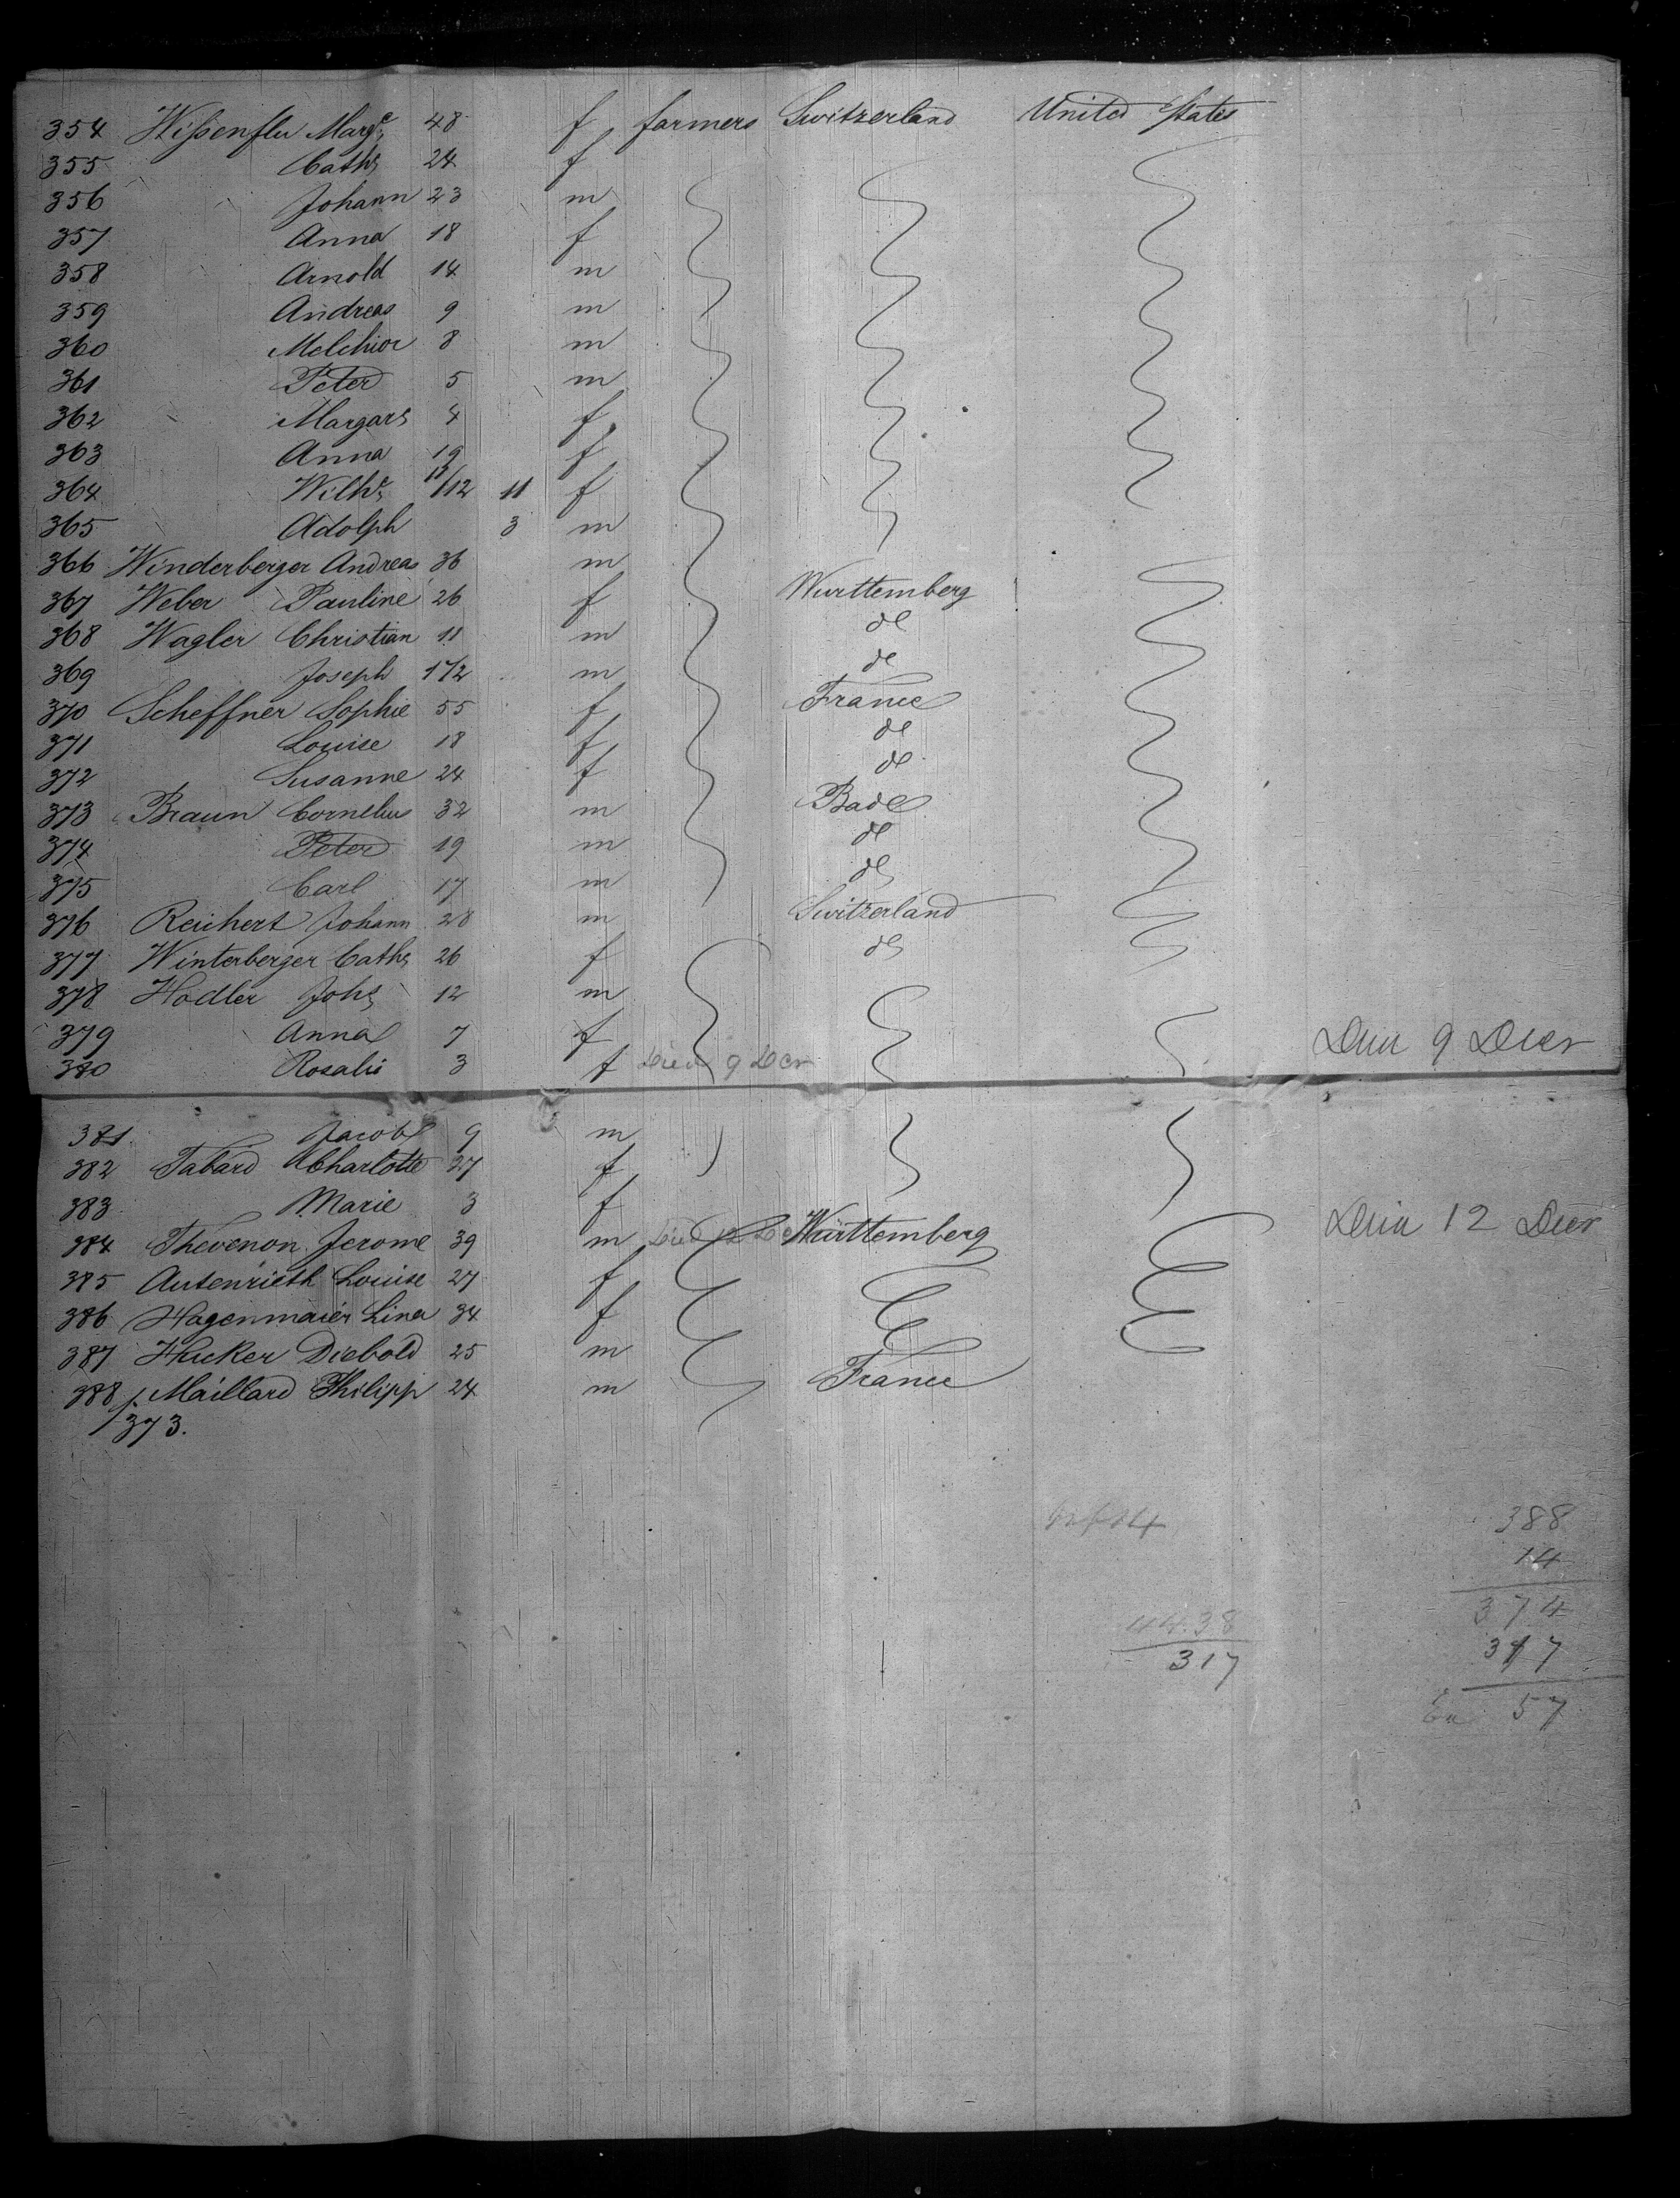 354 Wißenflu Margr 48 f farmers Switzerland United States
355 Cath 24 f
356 Johann 23 m
357 Anna 18 f
358 Arnold 14 m
359 Andreas 9 m
360 Melchior 8 m
361 Peter 5 m
362 Margar 4 f
363 Anna 19 f
364 Wilhr 11/12 11 f
365 Adolph 3 m
366 Winderberger Andreas 36 m
367 Weber Pauline 26 f Wurttemberg
368 Wagler Christian 11 m do
369 Joseph 1 1/2 m do
370 Scheffner Sophie 55 f France
371 Louise 18 f do
372 Susanne 24 f do
373 Braun Cornelius 32 m Bade
374 Peter 19 m do
375 Carl 17 m do
376 Reichert Johann 28 m Switzerland
377 Winterberger Cath 26 f do
378 Hodler Joh 12 m
379 Anna 7 f
380 Rosalie 3 f Died 9 Dcr Died 9 Decr
381 Jacob 9 m
382 Tabard Charlotte 37 f
383 Marie 3 f
384 Thevenon Jerome 39 m Died 12 Dc Württemberg Died 12 Decr
385 Autenrieth Louise 27 f
386 Hagenmaier Lina 34 f
387 Hucker Diebold 25 m
388 Maillard Philipp 24 m France
373.
388
14
374
44.38
317
317
57